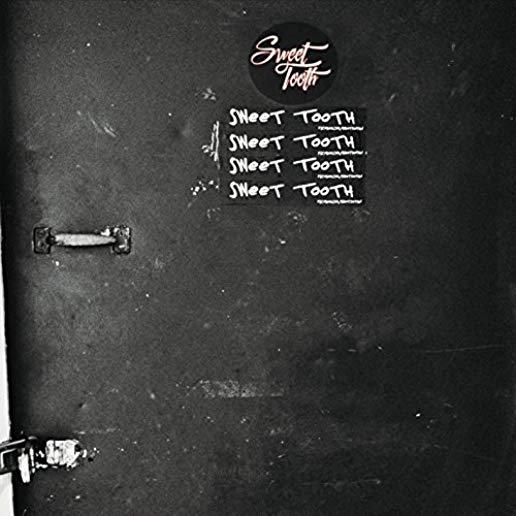 Sweet
Tooth
SWeeT TOOTH
SWeeT TOOTH
SWeeT TOOTH
SWeeT TOOTH